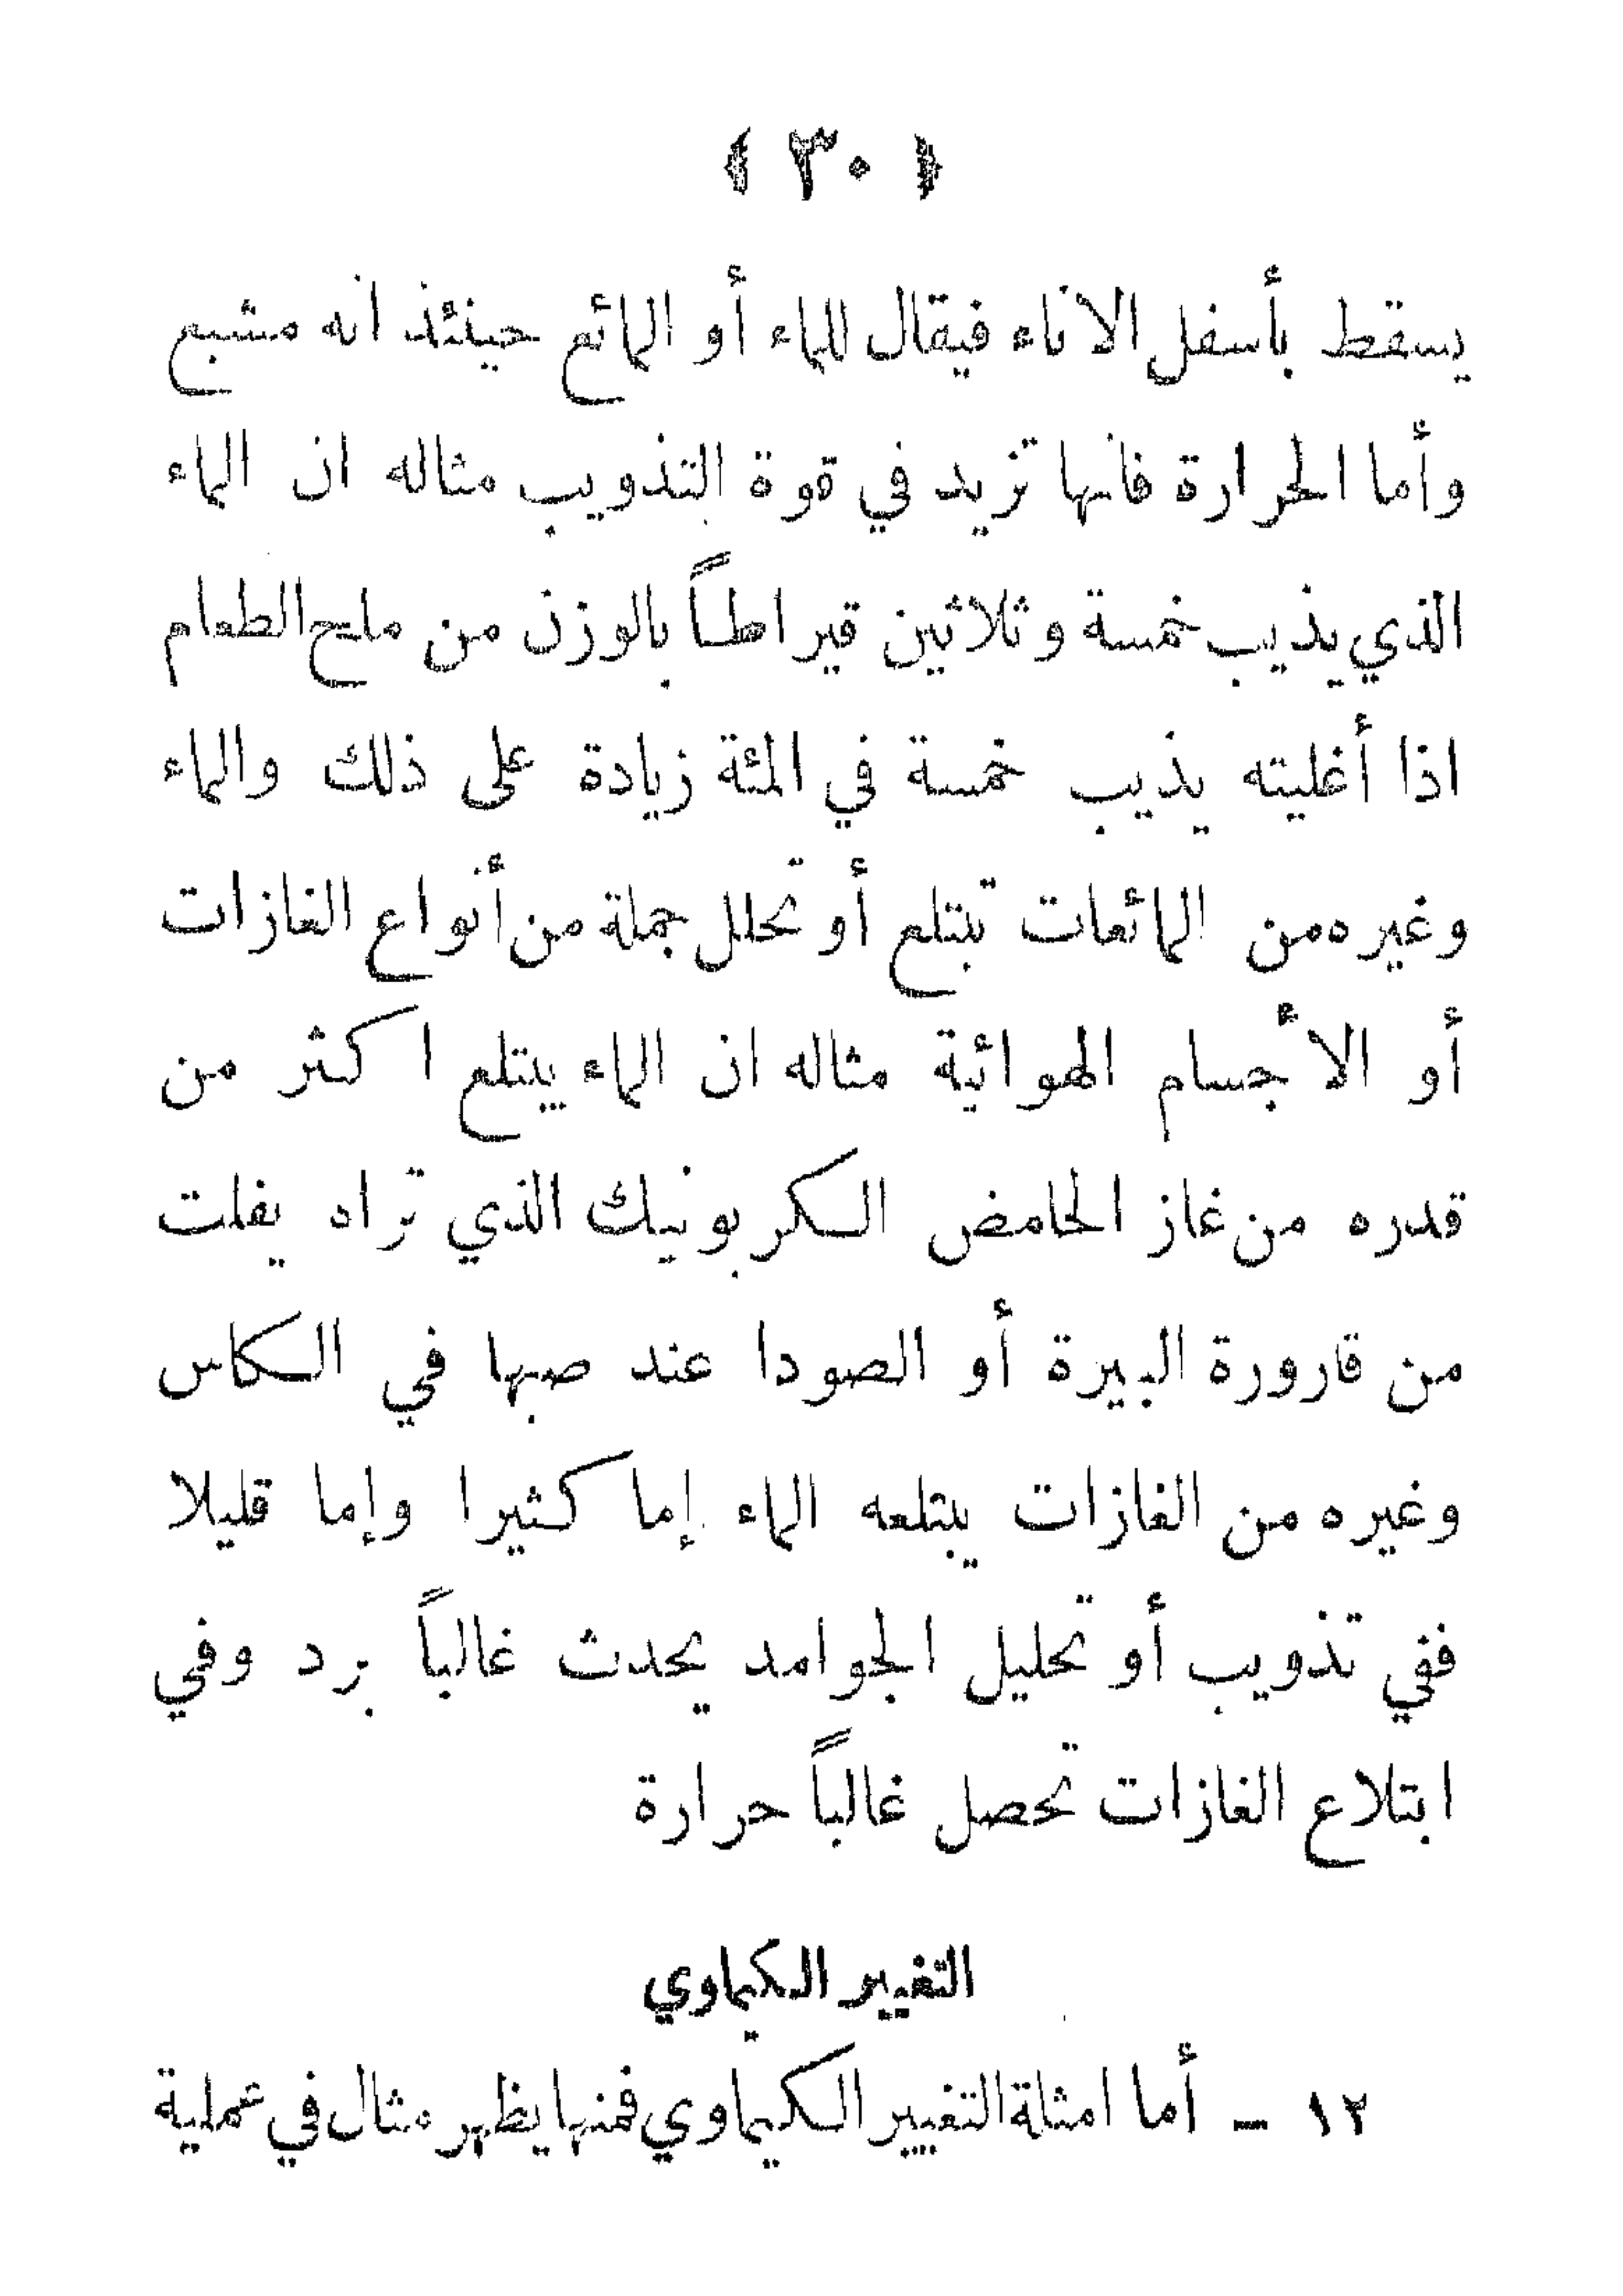 ﴿ ٣٠ ﴾
يسقط بأسفل الاناء فيقال للماء أو المائع حينئذ انه مشبع
وأما الحرارة فانها تزيد في قوة التذويب مثاله ان الماء
الذي يذيب خمسة وثلاثين قيراطاً بالوزن من ملح الطعام
اذا أغليته يذيب خمسة في المئة زيادة على ذلك والماء
وغيره من المائعات تبتلع أو تحلل جملة من أنواع الغازات
أو الأجسام الهوائية مثاله ان الماء يبتلع اكثر من
قدره من غاز الحامض الكربونيك الذي تراه يفلت
من قارورة البيرة أو الصودا عند صبها في الكاس
وغيره من الغازات يبتلعه الماء إما كثيرا وإما قليلا
ففي تذويب أو تحليل الجوامد يحدث غالباً برد وفي
ابتلاع الغازات تحصل غالباً حرارة
التغيير الكيماوي
١٢ – أما امثلة التغيير الكيماوي فمنها يظهر مثال في عملية